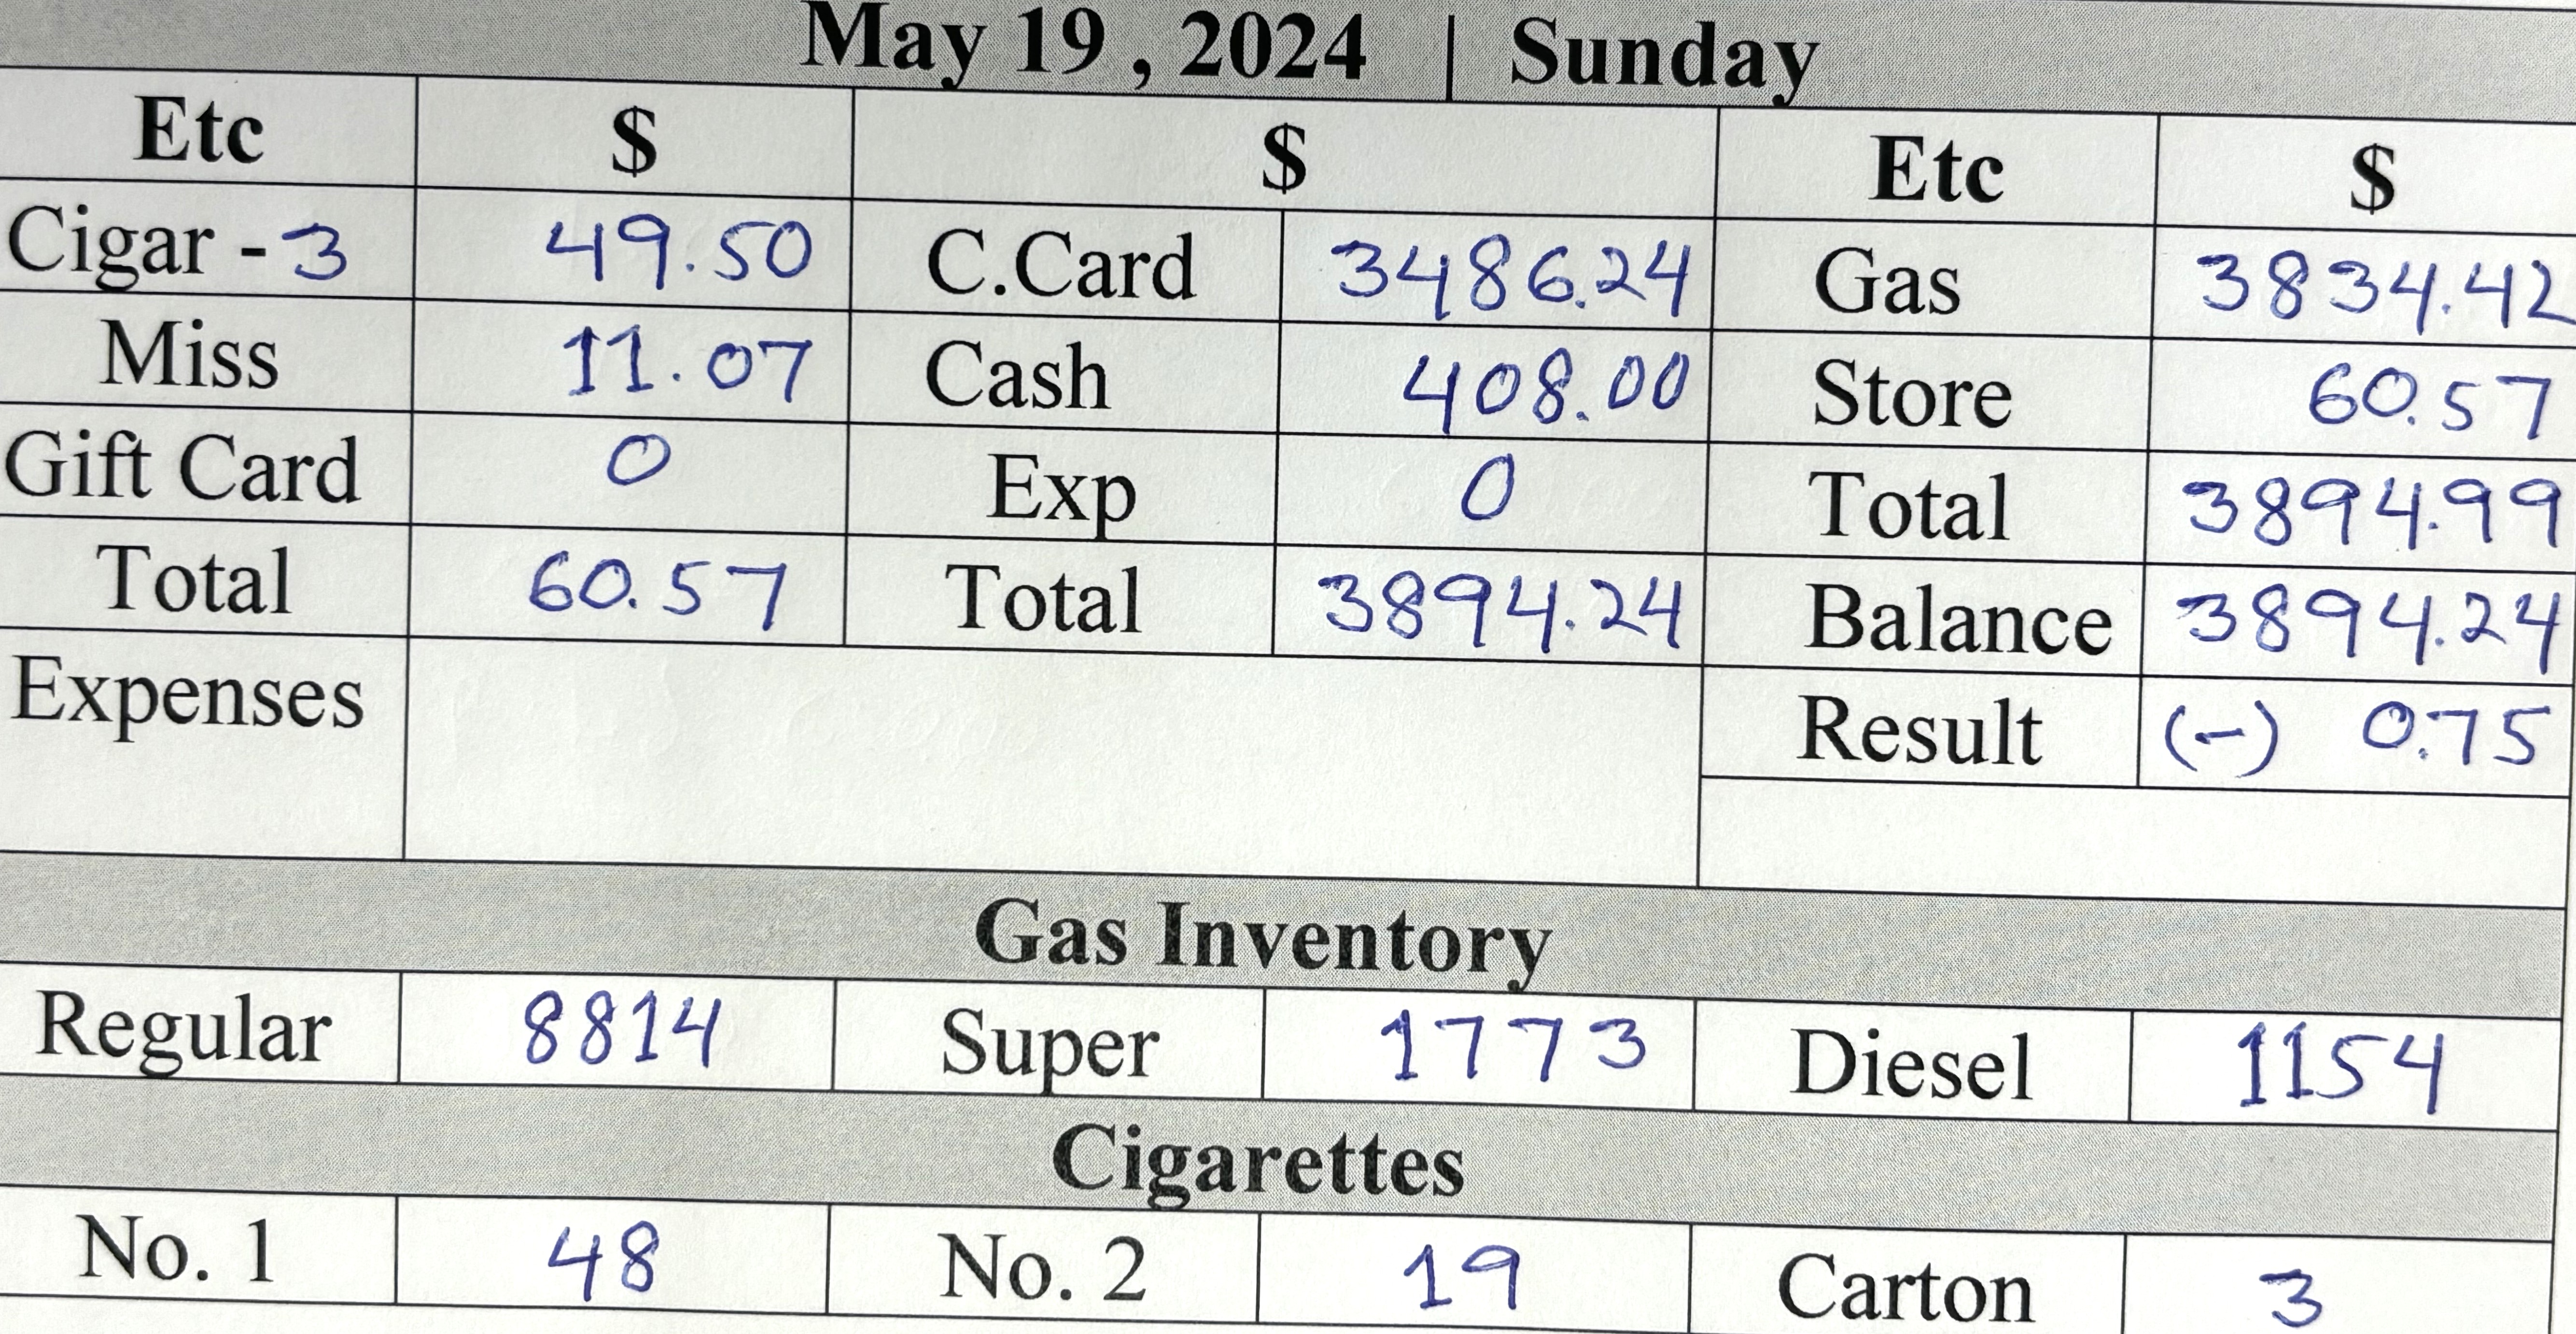 May 19 , 2024 | Sunday
Etc $ $ Etc $
Cigar - 3 49.50 C.Card 3486.24 Gas 3834.42
Miss 11.07 Cash 408.00 Store 60.57
Gift Card 0 Exp 0 Total 3894.99
Total 60.57 Total 3894.24 Balance 3894.24
Expenses Result (-) 0.75
Gas Inventory
Regular 8814 Super 1773 Diesel 1154
Cigarettes
No. 1 48 No. 2 19 Carton 3